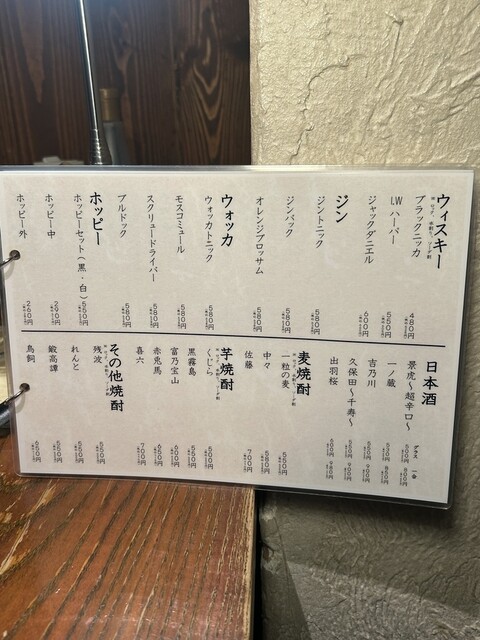 ウィスキー
ブラックニッカ
480円
I.W ハーパー
550円
ジャックダニエル
600円
ジン
ジントニック
580円
ジンバック
580円
オレンジブロッサム
580円
ウォッカ
ウォッカトニック
580円
モスコミュール
580円
スクリュードライバー
580円
ブルドック
580円
ホッピー
ホッピーセット(黒・白)
550円
ホッピー中
290円
ホッピー外
260円
日本酒
グラス 一合
景虎〜超辛口〜
500円 800円
一ノ蔵
530円 850円
吉乃川
550円 900円
久保田〜千寿〜
550円 900円
出羽桜
600円 980円
麦焼酎
一粒の麦
550円
中々
580円
佐藤
700円
芋焼酎
くじら
500円
黒霧島
550円
富乃宝山
600円
赤兎馬
650円
喜六
700円
その他焼酎
残波
550円
れんと
550円
鍛高譚
550円
鳥飼
650円